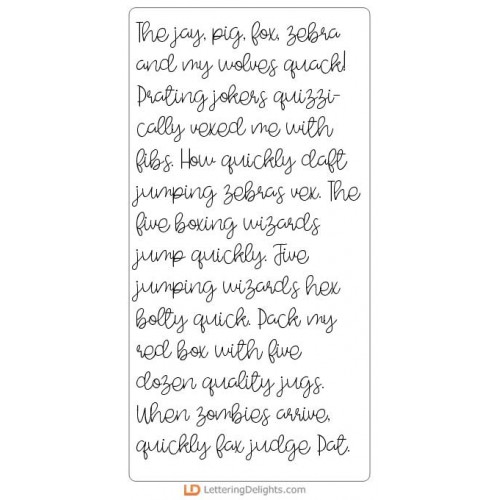 The jay, pig, fox, zebra
and my wolves quack!
Prating jokers quizzi-
cally vexed me with
fibs. How quickly daft
jumping zebras vex. The
five boxing wizards
jump quickly. Five
jumping wizards hex
bolty quick. Pack my
red box with five
dozen quality jugs.
When zombies arrive,
quickly fax judge Pat.
LD LetteringDelights.com